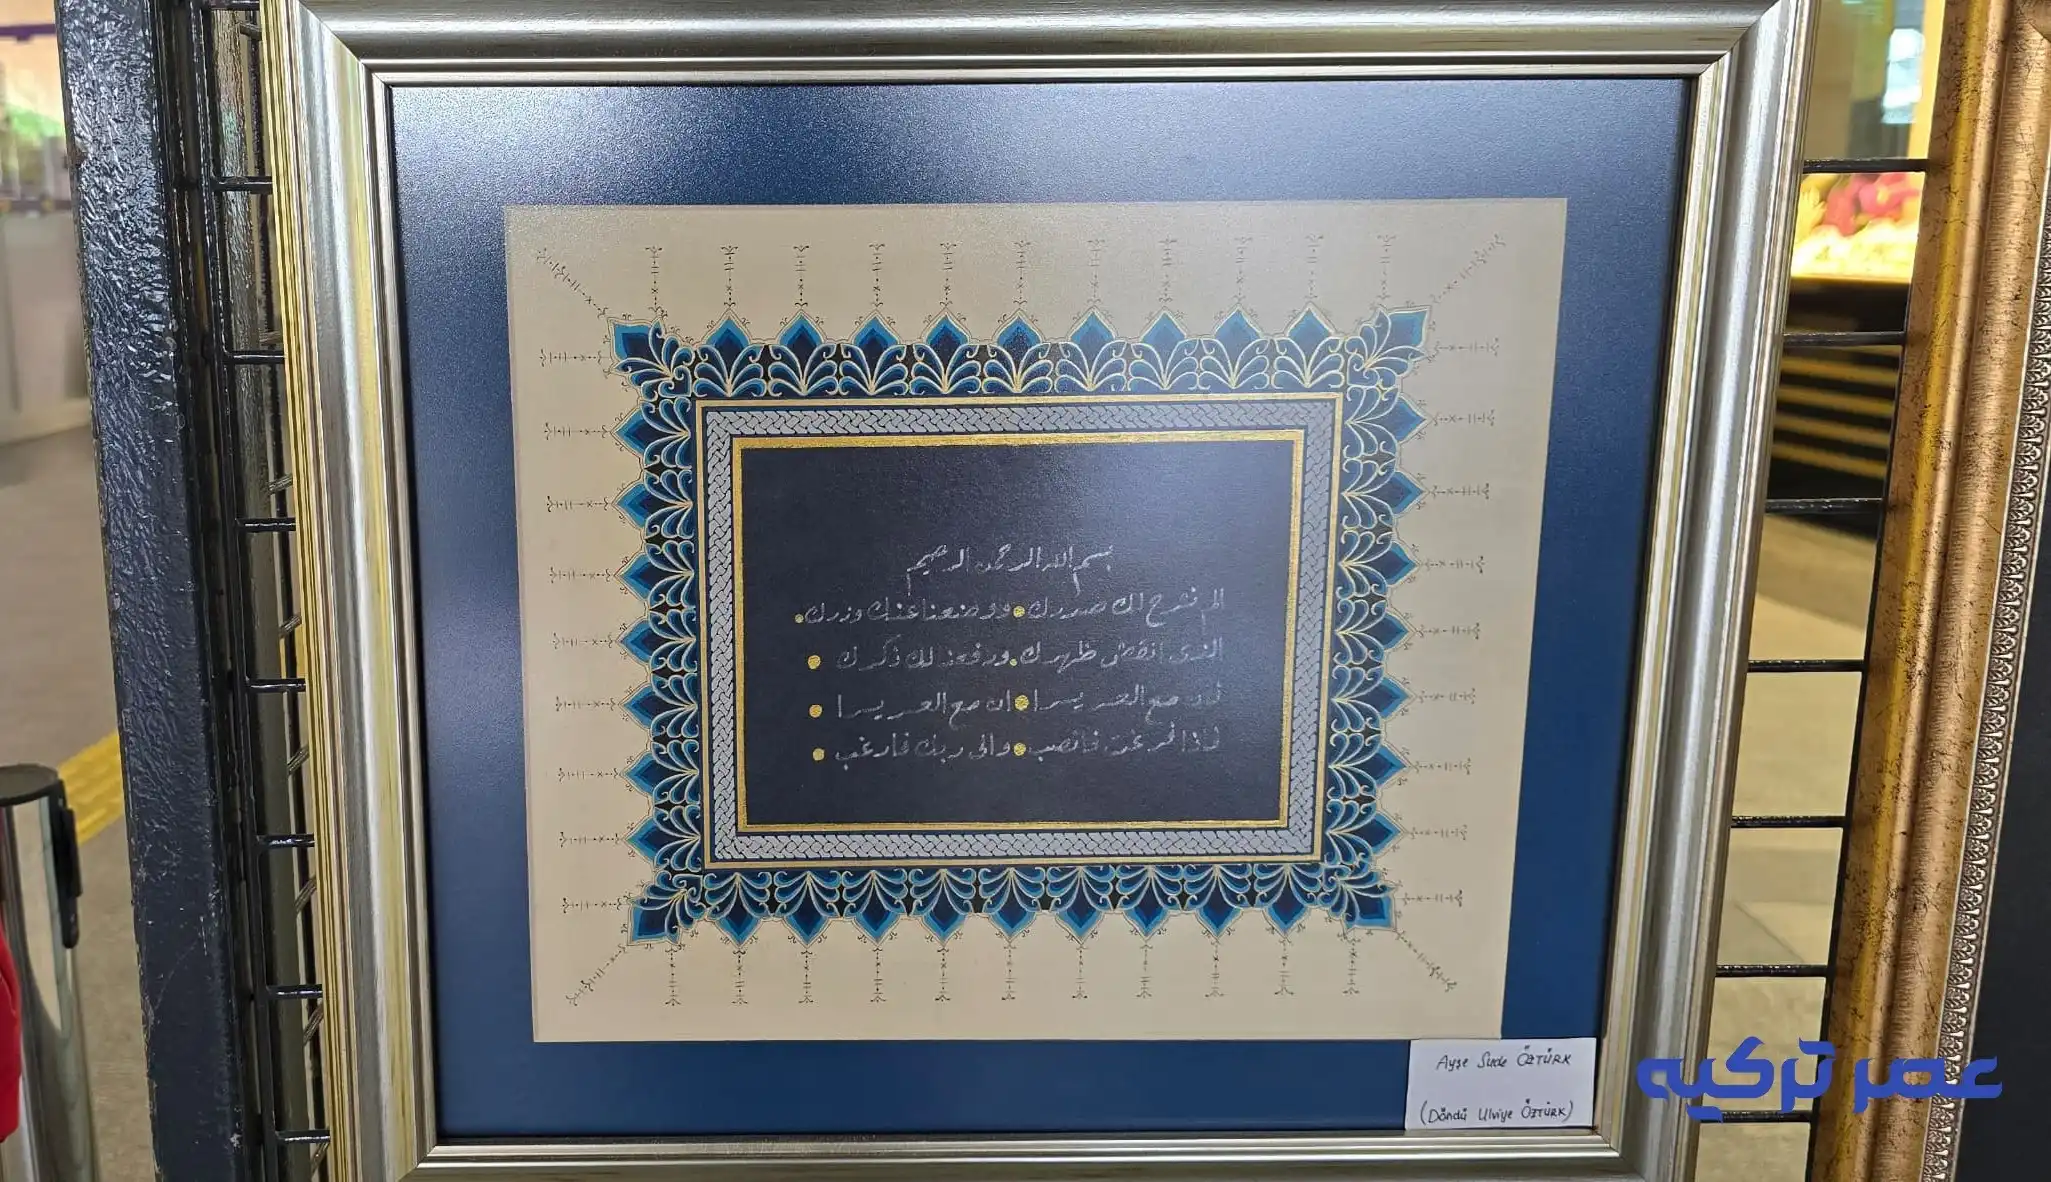 بسم الله الرحمن الرحيم
الم نشرح لك صدرك ووضعنا عنك وزرك
الذى انقض ظهرك ورفعنا لك ذكرك
فان مع العسر يسرا ان مع العسر يسرا
فاذا فرغت فانصب والى ربك فارغب
Ayşe Sude ÖZTÜRK
(Döndü Ulviye ÖZTÜRK)
عصر تركيه